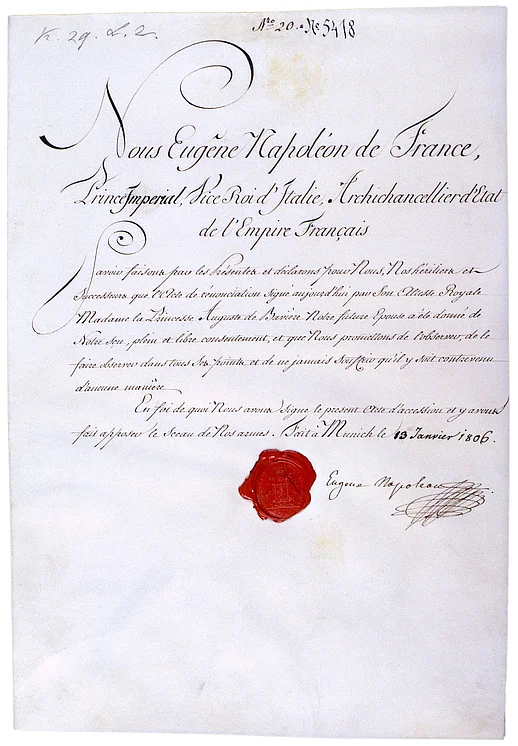 K. 29. L. 2.
Nro 20. № 5418
Nous Eugêne Napoléon de France,
Prince Imperial, Vice Roi d'Italie, Archichancellier d'Etat
de l'Empire Français
Savoir faisons par les présentes et déclarons pour Nous, Nos héritiers et
Successeurs que l'Acte de rénonciation signé aujourd'hui par Son Altesse Royale
Madame la Princesse Auguste de Bavière Notre future Epouse a été donné de
Notre Seu, plein et libre consentement, et que Nous promettons de l'observer, de le
faire observer dans tous Ses points et de ne jamais Souffrir qu'il y soit contrevenu
d'aucune manière
En foi de quoi Nous avons signé le present Acte d'accession et y avons
fait apposer le Sceau de Nos armes. Fait à Munich le 13 Janvier 1806.
Eugene Napoleon